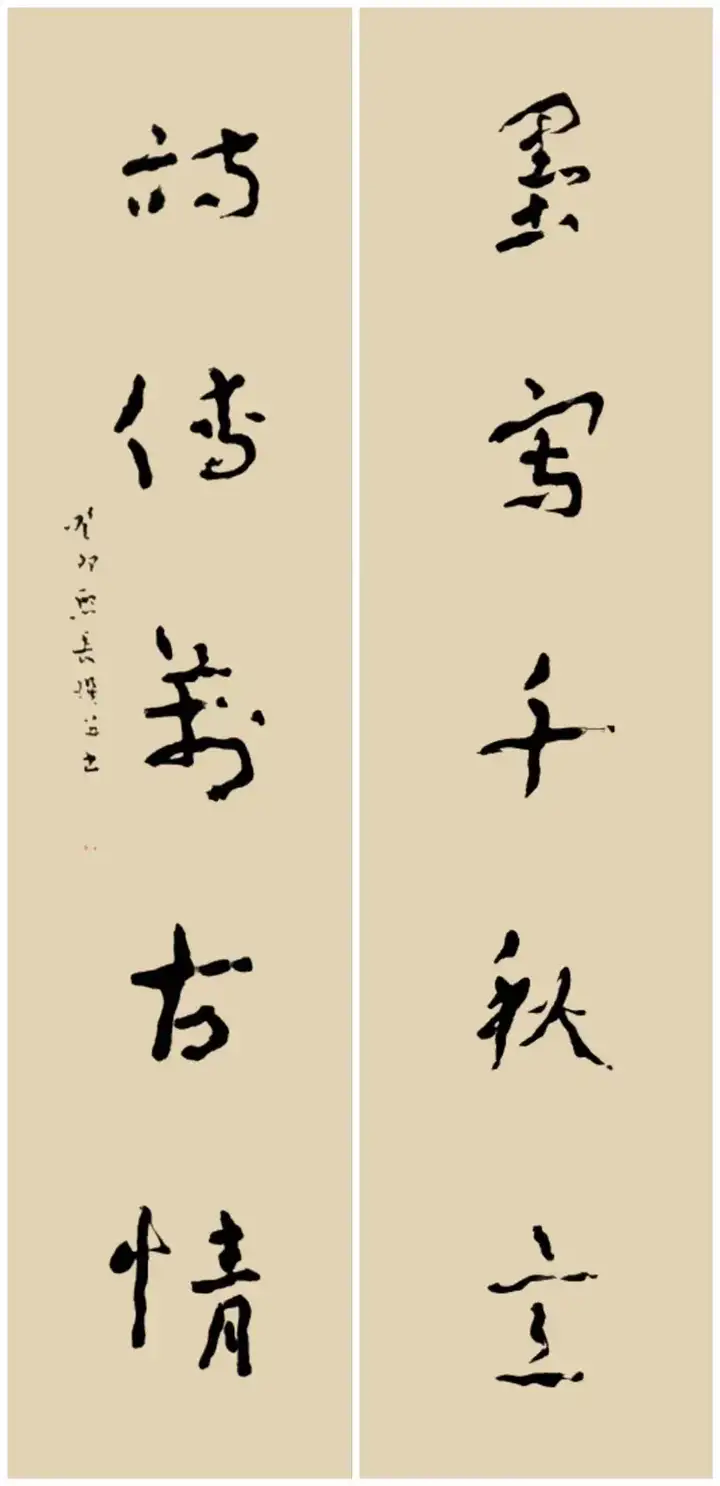 墨寫千秋意
詩傳萬古情
癸卯